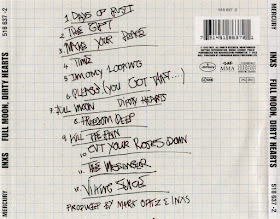 1 DAYS OF RUST
2 THE GIFT
3 MAKE YOUR PEACE
4 TIME
5 I'M ONLY LOOKING
6 PLEASE (YOU GOT THAT...)
7 FULL MOON DIRTY HEARTS
8 FREEDOM DEEP
9 KILL THE PAIN
10 CUT YOUR ROSES DOWN
11 THE MESSENGER
12 VIKING JUICE
PRODUCED BY MARK OPITZ & INXS
518 637-2
MERCURY INXS FULL MOON, DIRTY HEARTS 518 637-2
MERCURY INXS FULL MOON, DIRTY HEARTS 518 637-2